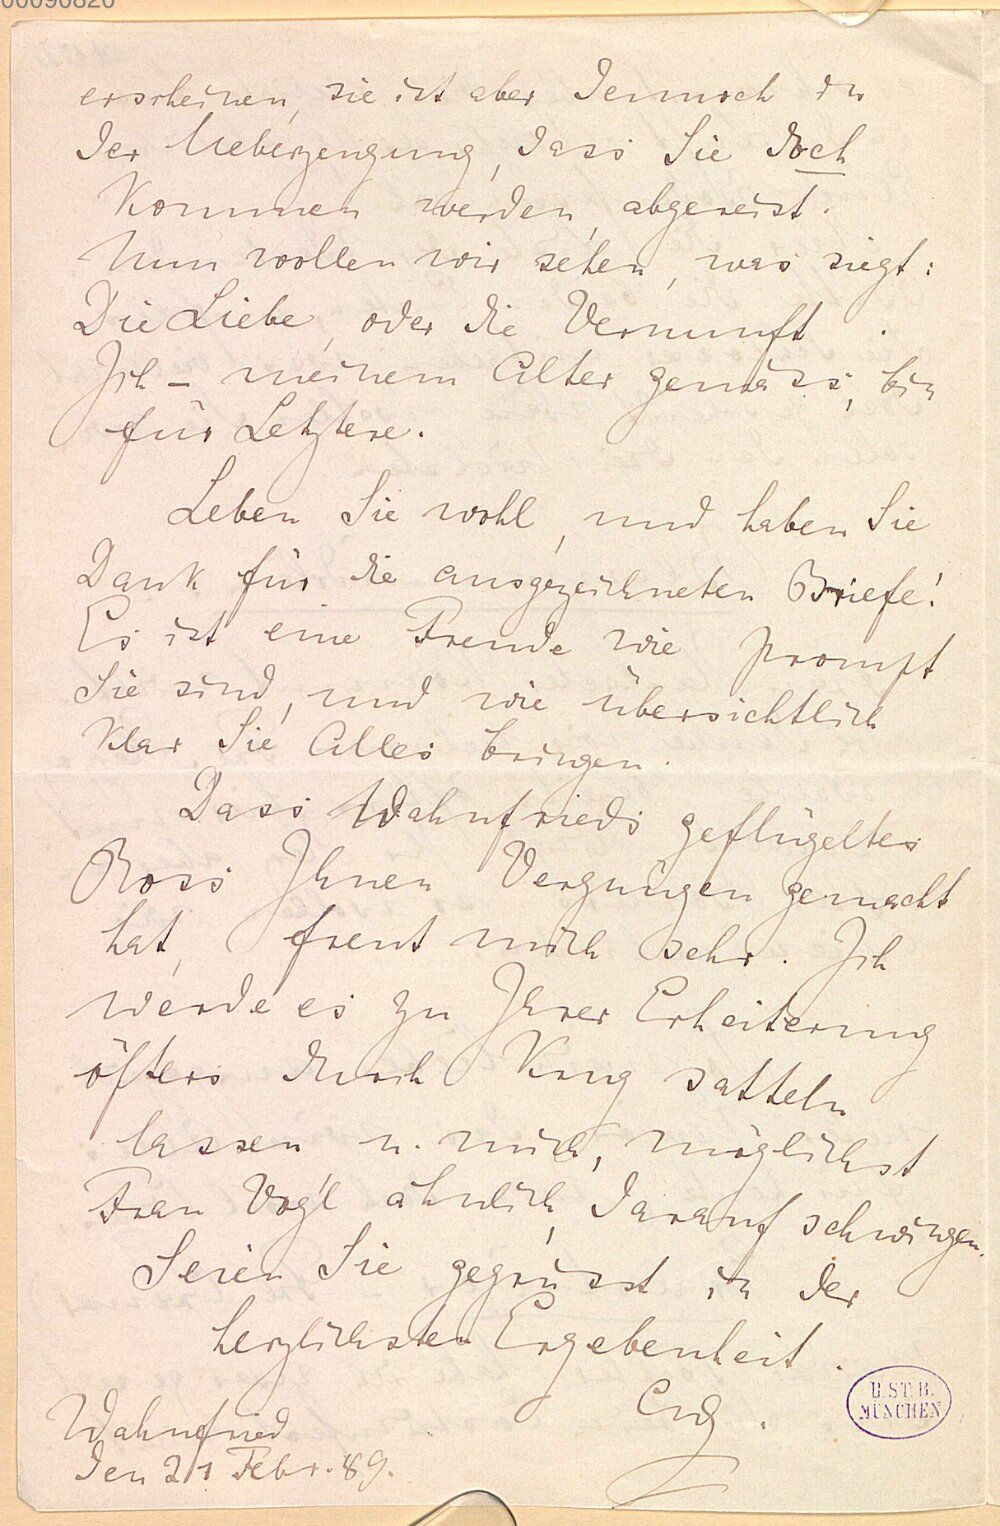 00090820
erscheinen, sie ist aber dennoch in
der Ueberzeugung, dass Sie doch
kommen werden, abgereist.
Nun wollen wir sehen, was siegt:
Die Liebe, oder die Vernunft.
Ich – meinem Alter gemäss, bin
für Letztere.
Leben Sie wohl, und haben Sie
Dank für die ausgezeichneten Briefe!
Es ist eine Freude wie prompt
Sie sind, und wie übersichtlich
klar Sie Alles bringen.
Dass Wahnfrieds geflügeltes
Ross Ihnen Vergnügen gemacht
hat, freut mich sehr. Ich
werde es zu Ihrer Erheiterung
öfters durch Krug satteln
lassen u. mich, möglichst
Frau Vogl ähnlich, darauf schwingen.
Seien Sie gegrüsst in der
herzlichsten Ergebenheit.
Wahnfried
den 21 Febr. 89.
B.ST.B.
MÜNCHEN